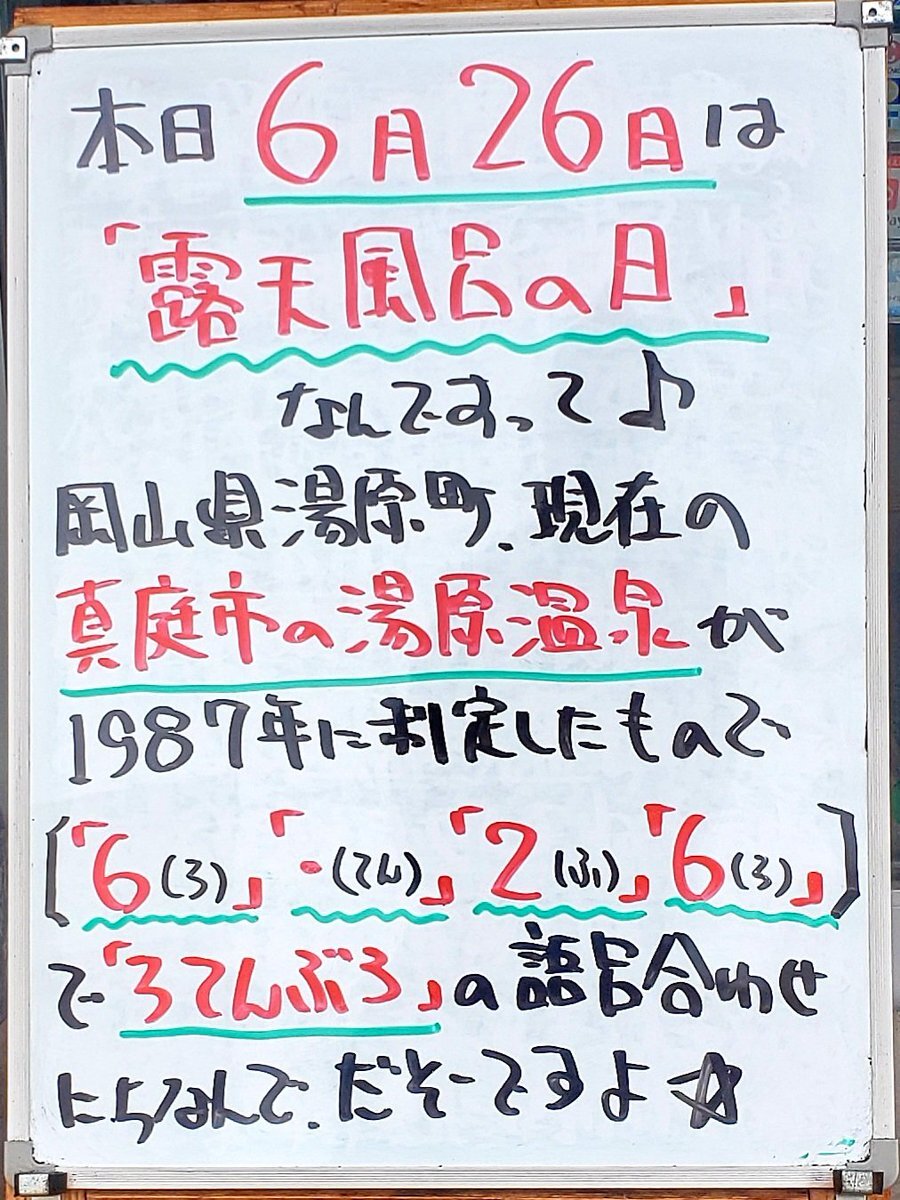 本日6月26日は
「露天風呂の日」
なんですって♪
岡山県湯原町、現在の
真庭市の湯原温泉が
1987年に制定したもので
[「6(ろ)」「・(てん)」「2(ふ)」「6(ろ)」]
で「ろてんぶろ」の語呂合わせ
にちなんで、だそーですよ☆